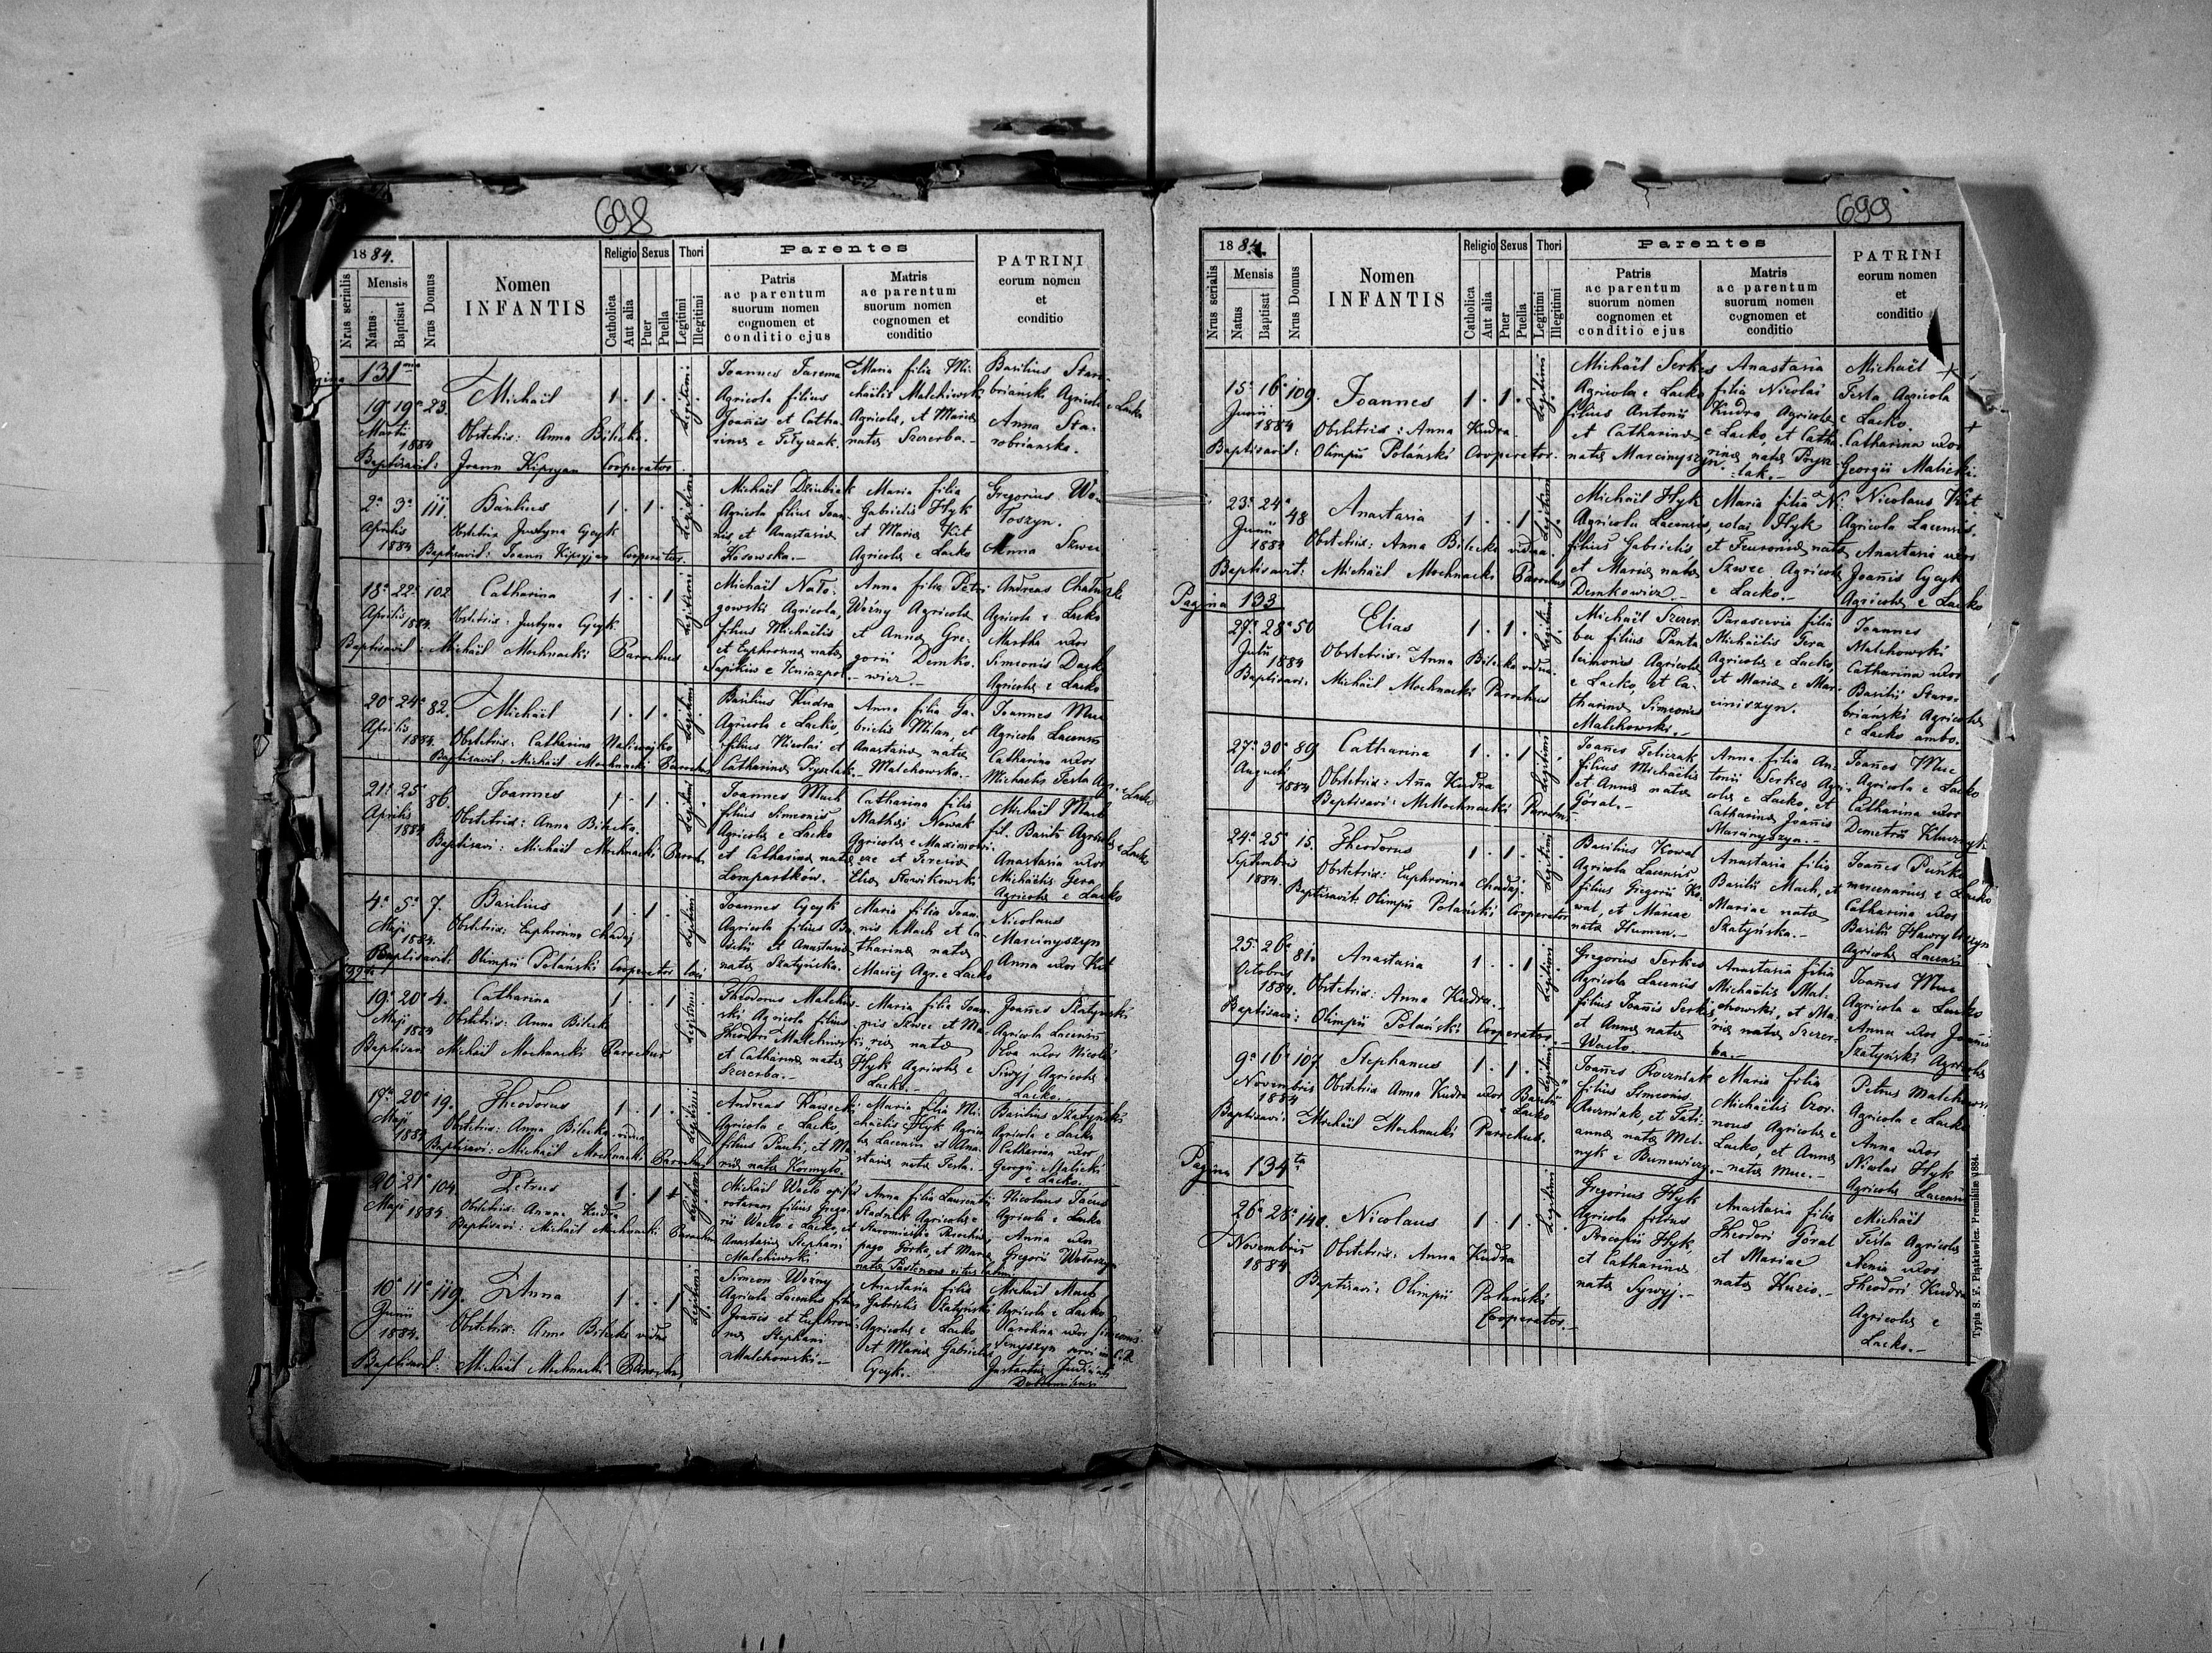 698
1884.
Nrus serialis
Mensis
Natus
Baptisat
Nrus Domus
Nomen
INFANTIS
Religio
Catholica
Aut alia
Sexus
Puer
Puella
Thori
Legitimi
Illegitimi
Parentes
Patris
ac parentum
suorum nomen
cognomen et
conditio ejus
Matris
ac parentum
suorum nomen
cognomen et
conditio
PATRINI
eorum nomen
et
conditio
131
19 19 23.
Martii
1884
Michaël
Obstetrix: Anna Bilecka.
Baptisavit: Joann Kipryan Cooperator.
1. 1.
Legitimi
Joannes Jarema
Agricola filius
Joannis et Catha-
rinae
Maria filia Mi-
chaëlis Malchiwski
Agricola, et Maria
nata Szczerba.
Basilius Staro-
briański Agricola e Lacko
Anna Sta-
robrianska.
2 3 111.
Aprilis
1884
Basilius
Obstetrix Justyna Gcyk
Baptisavit: Joann Kipryjan Cooperator.
1. 1.
Legitimi
Michaël Dziubiak
Agricola filius Joan-
nis et Anastasia
Kosowska.
Maria filia
Gabrielis Hyk
et Maria Kit
Agricola e Lacko
Gregorius Wo-
loszyn.
Anna Szwec
18 22 102
Aprilis
1884.
Catharina
Obstetrix: Justyna Gcyk
Baptisavit: Michaël Mochnacki Parochus
1. . 1
Legitimi
Michaël Nało-
gowski Agricola,
filius Michaëlis
et Euphrosina nata
Sapikius e Kniazpol.
Anna filia Petri
Woźny Agricola
et Anna Gre-
gorii Demko-
wicz.
Andreas
Agricola e Lacko
Martha uxor
Simeonis Dack
Agricola e Lacko
20 24 82.
Aprilis
1884.
Michaël
Obstetrix: Catharina Naliwajko
Baptisavit: Michaël Mochnacki Parochus
1. 1.
Legitimi
Basilius Kudra
Agricola e Lacko,
filius Nicolai et
Catharina Pryszlak
Anna filia Ga-
brielis Milan, et
Anastasia nata
Malchowska.
Joannes Muc
Agricola Lacensis
Catharina uxor
Michaelis Festa Agr. e Lacko
21 25 86.
Aprilis
1884
Joannes
Obstetrix: Anna Bilecka.
Baptisavi: Michaël Mochnacki Paroch
1. 1.
Legitimi
Joannes Mach
filius Simeonis
Agricola e Lacko
et Catharina nata
Lompartków.
Catharina filia
Mathei Nowak
Agricola e Maximow
Elia Słowikowski
Michaël Mach
fil. Basilii Agricola e Lacko
Anastasia uxor
Michaëlis Gera
Agricola e Lacko
4 5 7.
Maji
1884.
Basilius
Obstetrix: Euphrosina Chaday
Baptisavit: Olimpii Polański Cooperator loci
1. 1.
Legitimi
Joannes Cycyk
Agricola filius Ba-
silii et Anastasia
nata Szatyńska.
Maria filia Joan-
nis Mach et Ca-
tharina nata
Maciej Agr. e Lacko
Nicolaus
Marcinyszyn
Anna uxor Kit
19 20 4.
Maji
1884
Catharina
Obstetrix: Anna Bileck
Baptisavi Michaël Mochnacki Parochus
1 . . 1
Legitimi
Theodorus Malchiw-
ski Agricola filius
Theodori Malchiwski
et Catharina nata
Szczerba.
Maria filia Joan-
nis Szwec et Ma-
ria nata
Hyk Agricola e
Lacko.
Joannes Szatyński
Agricola Lacensis
Eva uxor Nicolai
Siwyj Agricola
Lacko.
17 20 19.
Maji
1884
Theodorus
Obstetrix: Anna Bilecka vidua
Baptisavi: Michaël Mochnacki Parochus
1. 1.
Legitimi
Andreas Kawecki
Agricola e Lacko,
filius Pauli, et Ma-
ria nata Kormyło
Maria filia Mi-
chaëlis Hyk Agrico-
la Lacensis et Ana-
stasia nata Festa.
Basilius Szatyński
Agricola e Lacko
Catharina uxor
Georgii Malicki
e Lacko.
20 21 104
Maji
1884
Petrus
Obstetrix: Anna Kudra
Baptisavi: Michaël Mochnacki Parochus
1. 1
Legitimi
Michaël Wacło
filius Grego-
rii Wacło e Lacko, et
Anastasia Stephani
Malchiwski
Anna filia Laurentii
Stadnik Agricola e
Staromieścia
pago Górka, et Maria
nata
Nicolaus
Agricola e Lacko
Anna uxor
Gregorii Wołoszyn
10 11 119.
Junii
1884.
Anna
Obstetrix: Anna Bilecka vidua
Baptisavit: Michaël Mochnacki Parochus
1. . 1
Legitimi
Simeon Woźny
Agricola Lacensis filius
Joannis et Euphrosi-
na Stephani
Malchowski.
Anastasia filia
Gabrielis Szatyński
Agricola e Lacko
et Maria Gabrielis
Cycyk.
Michaël Mach
Agricola e Lacko
Karolina uxor Simeonis
Senyszyn
699
1884.
Nrus serialis
Mensis
Natus
Baptisat
Nrus Domus
Nomen
INFANTIS
Religio
Catholica
Aut alia
Sexus
Puer
Puella
Thori
Legitimi
Illegitimi
Parentes
Patris
ac parentum
suorum nomen
cognomen et
conditio ejus
Matris
ac parentum
suorum nomen
cognomen et
conditio
PATRINI
eorum nomen
et
conditio
15 16 109.
Junii
1884
Joannes
Obstetrix: Anna Kudra
Baptisavit: Olimpii Polański Cooperator.
1. 1.
Legitimi
Michaël Serkes
Agricola e Lacko
filius Antonii
et Catharina
nata Marcinyszyn.
Anastasia
filia Nicolai
Kudra Agricola
e Lacko, et Catha-
rina nata Prysz-
lak.
Michaël
Festa Agricola
e Lacko.
Catharina uxor
Georgii Malicki.
23 24 48
Junii
1884
Anastasia
Obstetrix: Anna Bilecka vidua.
Baptisavit: Michaël Mochnacki Parochus
1. . 1
Legitimi
Michaël Hyk
Agricola Lacensis,
filius Gabrielis,
et Maria nata
Demkowicz.
Maria filia Ni-
colai Hyk
et Feuronia nata
Szwec Agricola
e Lacko.
Nicolaus Kit
Agricola Lacensis.
Anastasia uxor
Joannis Cycyk
Agricola e Lacko
Pagina 133
27 28 50
Julii
1884
Elias
Obstetrix: Anna Bilecka vidua.
Baptisavi: Michaël Mochnacki Parochus
1. 1.
Legitimi
Michaël Szczer-
ba filius Panta-
leimonis Agricola
e Lacko, et Ca-
tharina Simeonis
Malchowski.
Parascevia filia
Michaëlis Gera
Agricola e Lacko,
et Maria e Mar-
ciniszyn.
Joannes
Malchowski
Catharina uxor
Basilii Staro-
briański Agricola
e Lacko ambo.
27 30 89
Augusti
1884
Catharina
Obstetrix: Anna Kudra
Baptisavi: M. Mochnacki Parochus
1. . 1
Legitimi
Joannes Feliczak
filius Michaëlis
et Anna nata
Góral.
Anna filia An-
tonii Serkes Agri-
cola e Lacko, et
Catharina Joannis
Marcinyszyn.
Joannes Muc
Agricola e Lacko
Catharina uxor
Demetrii Kluczyk
24 25 15.
Septembris
1884.
Theodorus
Obstetrix: Euphrosina Chaday.
Baptisavit: Olimpii Polański Cooperator
1. 1.
Legitimi
Basilius Kowal
Agricola Lacensis,
filius Gregorii Ko-
wal, et Mariae
nata Humen.
Anastasia filia
Basilii Mach, et
Mariae nata
Szatyńska.
Joannes Pańko
mercenarius e Lacko
Catharina uxor
Basilii Hawryliszyn
Agricola Lacensis
25 26 81.
Octobris
1884.
Anastasia
Obstetrix: Anna Kudra.
Baptisavi: Olimpii Polański Cooperator.
1. . 1
Legitimi
Gregorius Serkes
Agricola Lacensis
filius Joannis Serkes
et Anna nata
Wacło.
Anastasia filia
Michaëlis Mal-
chowski, et Ma-
ria nata Szczer-
ba.
Joannes Muc
Agricola e Lacko
Anna uxor Joannis
Szatyński Agricola
9 16 107
Novembris
1884
Stephanus
Obstetrix Anna Kudra uxor Basilii
e Lacko
Baptisavi: Michaël Mochnacki Parochus.
1. 1.
Legitimi
Joannes Roczniak
filius Simeonis
Roczniak, et Tati-
anna nata Mel-
nyk e Buniewiczy.
Maria filia
Michaëlis Czor-
nous Agricola e
Lacko, et Anna
nata Muc.
Petrus Malchows
Agricola e Lacko
Anna uxor
Nicolai Hyk
Agricola Lacensis
Pagina 134ta
26 28 140.
Novembris
1884
Nicolaus
Obstetrix: Anna Kudra
Baptisavi: Olimpii Polański
Cooperator.
1. 1.
Legitimi
Gregorius Hyk
Agricola filius
Procopii Hyk,
et Catharina
nata Sywyj.
Anastasia filia
Theodori Góral
et Mariae
nata Huzio.
Michaël
Festa Agricola
Xenia uxor
Theodori Kudra
Agricola e
Lacko.
Typis S. F. Piątkiewicz. Premisliae 1884.